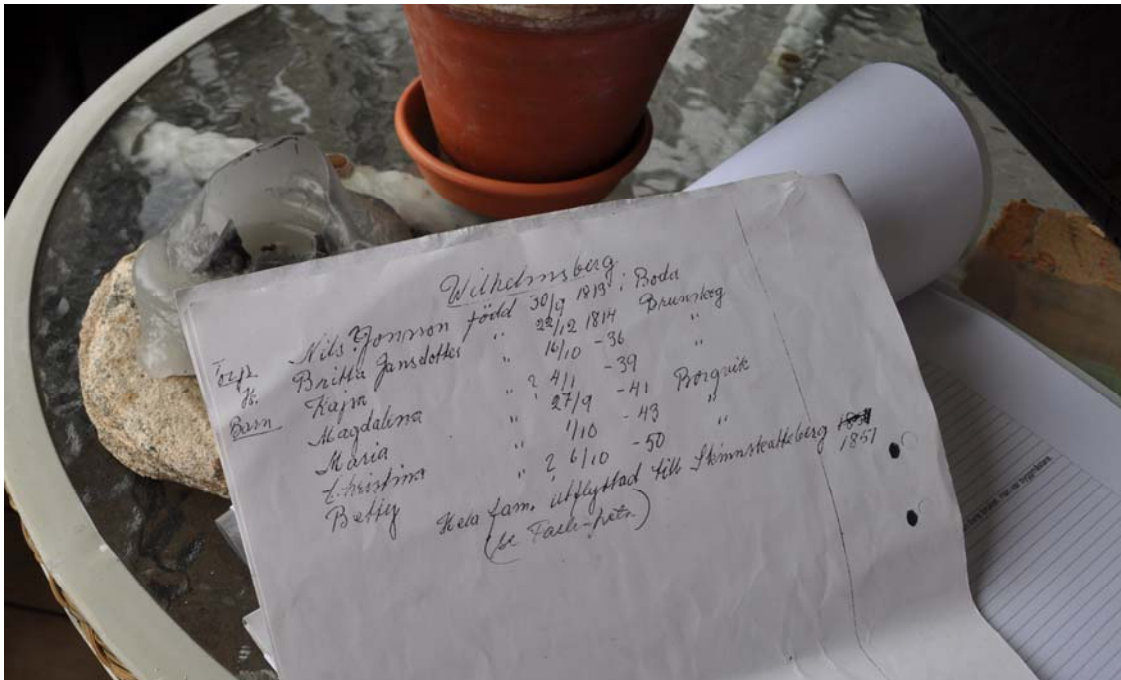 Wilhelmsberg
Torp. Nils Jonsson född 30/9 1813 i Boda
H. Britta Jansdotter " 22/12 1814 Brunskog
Barn Kajsa " 16/10 -36 "
Magdalena " 2 4/1 -39
Maria " 27/9 -41 Borgvik
Christina " 1/10 -43 "
Betty " 2 6/10 -50 "
Hela fam. utflyttad till Skinnskatteberg 1851
(se